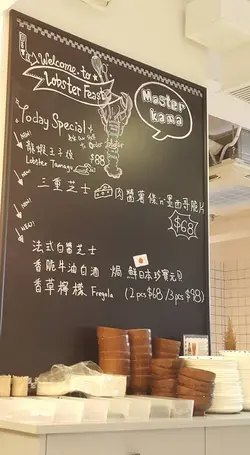 Welcome to
Lobster Feast
Master
kama
Today Special
to Order
龍蝦玉子燒
Lobster Tamago
$88
NEW!
三重芝士 肉醬薯條 n' 墨西哥脆片
$68
NEW!
NEW!
法式白醬芝士
香脆牛油白酒 焗 鮮日本珍寶元貝
香草檸檬 Fregola (2pcs $68 / 3pcs $98)